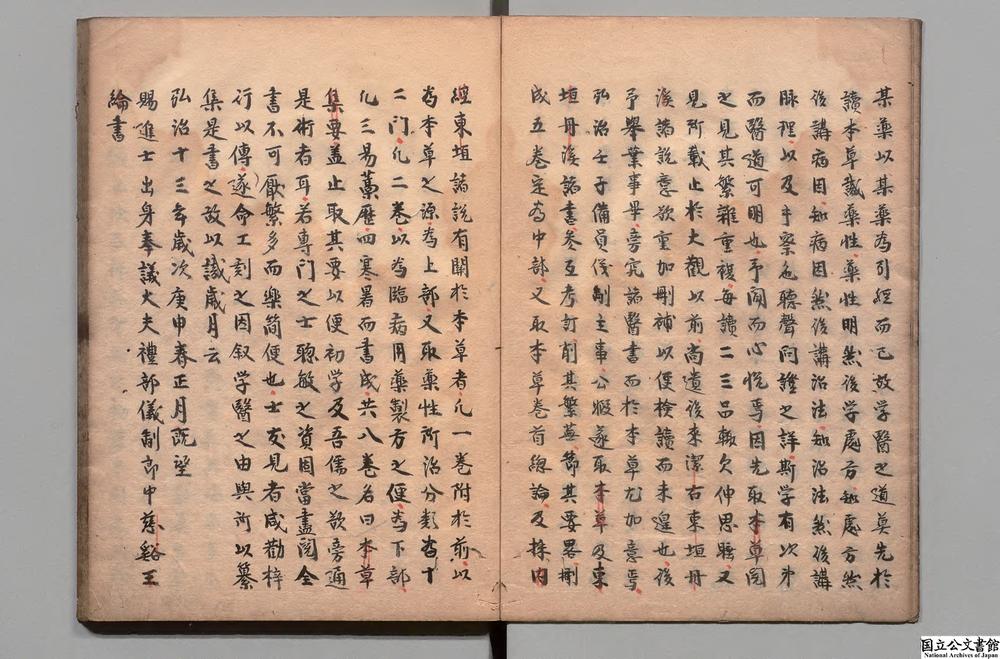 某藥以某藥為引經而已故学醫之道莫先於
讀本草識藥性藥性明然後学處方知處方然
後講病因知病因然後講治法知治法然後講
脉理以及乎察色聽聲問證之詳斯学有次第
而醫道可明也予聞而心悦焉因先取本草閲
之見其繁雜重複每讀二三品輒欠伸思睡又
見所載止於大觀以前尚遺後来潔古東垣丹
溪諸説意欲重加刪補以便檢讀而未遑也後
予舉業事畢旁究諸醫書而於本草尤加意焉
弘治壬子備員儀制主事公暇遂取本草及東
垣丹溪諸書参互考訂削其繁蕪節其要畧刪
成五巻定為中部又取本草巻首總論及採内
經東垣諸説有關於本草者凡一巻附於前以
為本草之源為上部又取藥性所治分類為十
二門凡二巻以為臨病用藥製方之便為下部
凡三易藁歴四寒暑而書成共八巻名曰本草
集要蓋止取其要以便初学及吾儒之欲旁通
是術者耳若專門之士聰敏之資固當盡閲全
書不可厭繁多而樂简便也士友見者咸勸梓
行以傳遂命工刻之因叙学醫之由與所以纂
集是書之故以識歳月云
弘治十三年歳次庚申春正月既望
賜進士出身奉議大夫禮部儀制郎中慈谿王
綸書
国立公文書館
National Archives of Japan